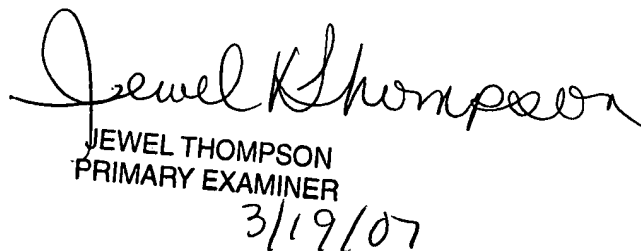 Jewel K Thompson
JEWEL THOMPSON
PRIMARY EXAMINER
3/19/07